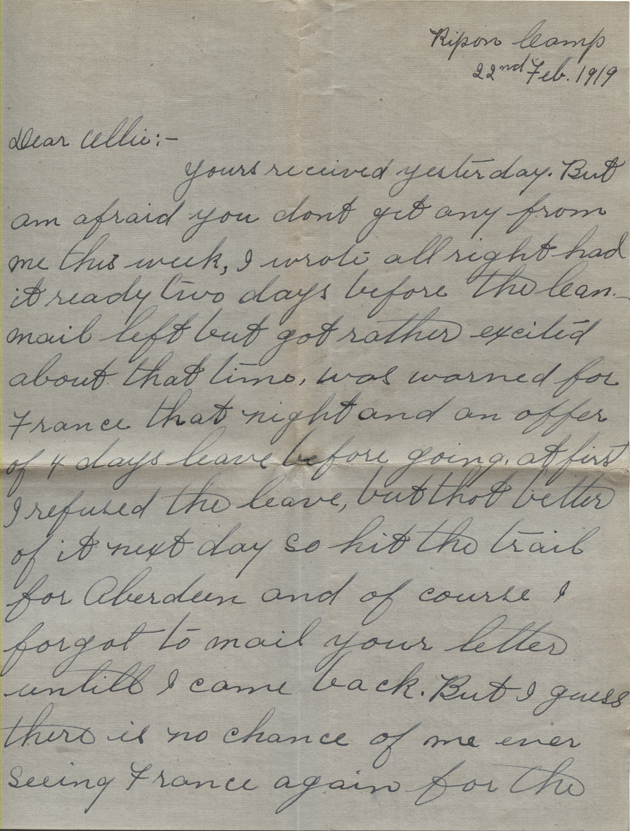 Ripon Camp
22nd Feb. 1919
Dear Ellie:-
Yours received yesterday. But
am afraid you dont get any from
me this week, I wrote all right had
it ready two days before the Can.
mail left but got rather excited
about that time, was warned for
France that night and an offer
of 4 days leave before going. at first
I refused the leave, but thot better
of it next day so hit the trail
for Aberdeen and of course I
forgot to mail your letter
untill I came back. But I guess
there is no chance of me ever
seeing France again for the